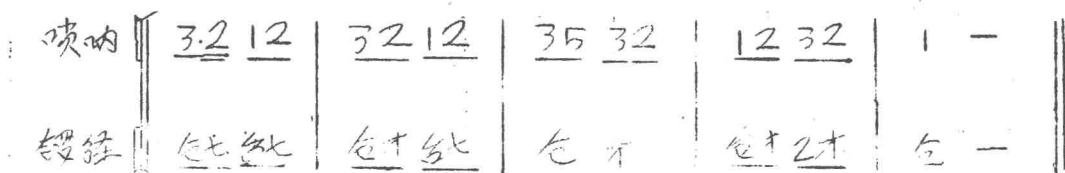 唢呐 3.2 12 | 32 12 | 35 32 | 12 32 | 1 —
锣经 仓七 台七 | 仓才 台七 | 仓 才 | 仓才 乙才 | 仓 —